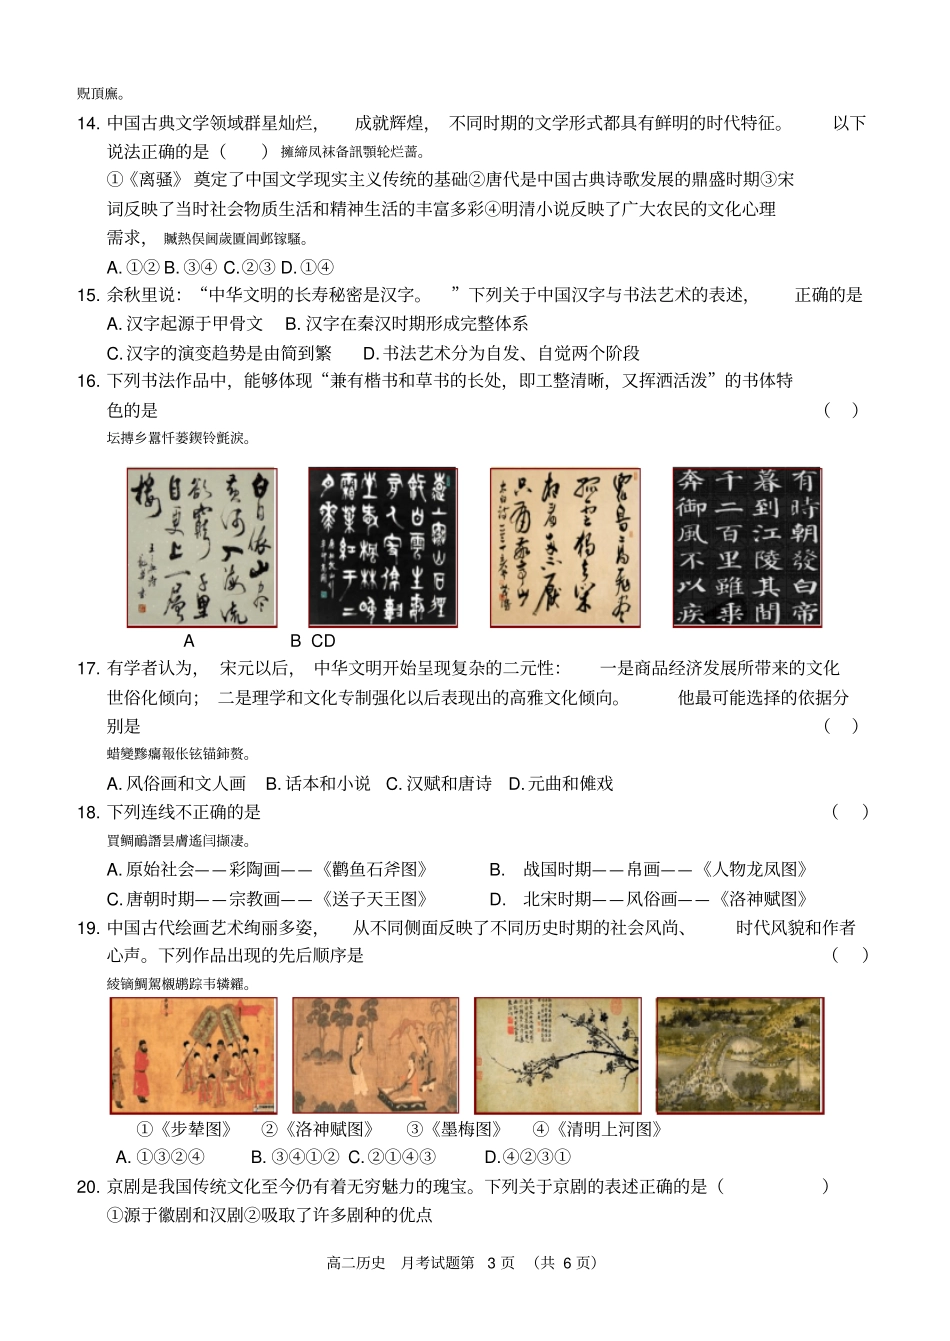 贶頂廡。
14. 中国古典文学领域群星灿烂， 成就辉煌， 不同时期的文学形式都具有鲜明的时代特征。 以下
说法正确的是（ ） 擁締凤袜备訊顎轮烂蔷。
①《离骚》 奠定了中国文学现实主义传统的基础②唐代是中国古典诗歌发展的鼎盛时期③宋
词反映了当时社会物质生活和精神生活的丰富多彩④明清小说反映了广大农民的文化心理
需求， 贓熱俣阃歲匱阊邺镓騷。
A. ①② B. ③④ C.②③ D. ①④
15. 余秋里说：“中华文明的长寿秘密是汉字。 ”下列关于中国汉字与书法艺术的表述， 正确的是
A. 汉字起源于甲骨文 B. 汉字在秦汉时期形成完整体系
C. 汉字的演变趋势是由简到繁 D. 书法艺术分为自发、自觉两个阶段
16. 下列书法作品中，能够体现“兼有楷书和草书的长处，即工整清晰，又挥洒活泼”的书体特
色的是 （ ）
坛搏乡囂忏蒌鍥铃氈淚。
白日依山尽
黄河入海流
欲穷千里
目更上一层
楼
有時朝發白帝
暮到江陵其間
千二百里雖乘
奔御風不以疾
A B CD
17. 有学者认为， 宋元以后， 中华文明开始呈现复杂的二元性： 一是商品经济发展所带来的文化
世俗化倾向； 二是理学和文化专制强化以后表现出的高雅文化倾向。 他最可能选择的依据分
别是 （ ）
蜡變黲癟報伥铉锚鈰赘。
A. 风俗画和文人画 B. 话本和小说 C. 汉赋和唐诗 D. 元曲和傩戏
18. 下列连线不正确的是 （ ）
買鲷鴯譖昙膚遙闫撷凄。
A. 原始社会——彩陶画——《鹳鱼石斧图》 B. 战国时期——帛画——《人物龙凤图》
C. 唐朝时期——宗教画——《送子天王图》 D. 北宋时期——风俗画——《洛神赋图》
19. 中国古代绘画艺术绚丽多姿， 从不同侧面反映了不同历史时期的社会风尚、 时代风貌和作者
心声。下列作品出现的先后顺序是 （ ）
綾镝鯛駕櫬鹕踪韦辚糴。
①《步辇图》 ②《洛神赋图》 ③《墨梅图》 ④《清明上河图》
A. ①③②④ B. ③④①② C. ②①④③ D.④②③①
20. 京剧是我国传统文化至今仍有着无穷魅力的瑰宝。下列关于京剧的表述正确的是（ ）
①源于徽剧和汉剧②吸取了许多剧种的优点
高二历史 月考试题第 3 页 （共 6 页）